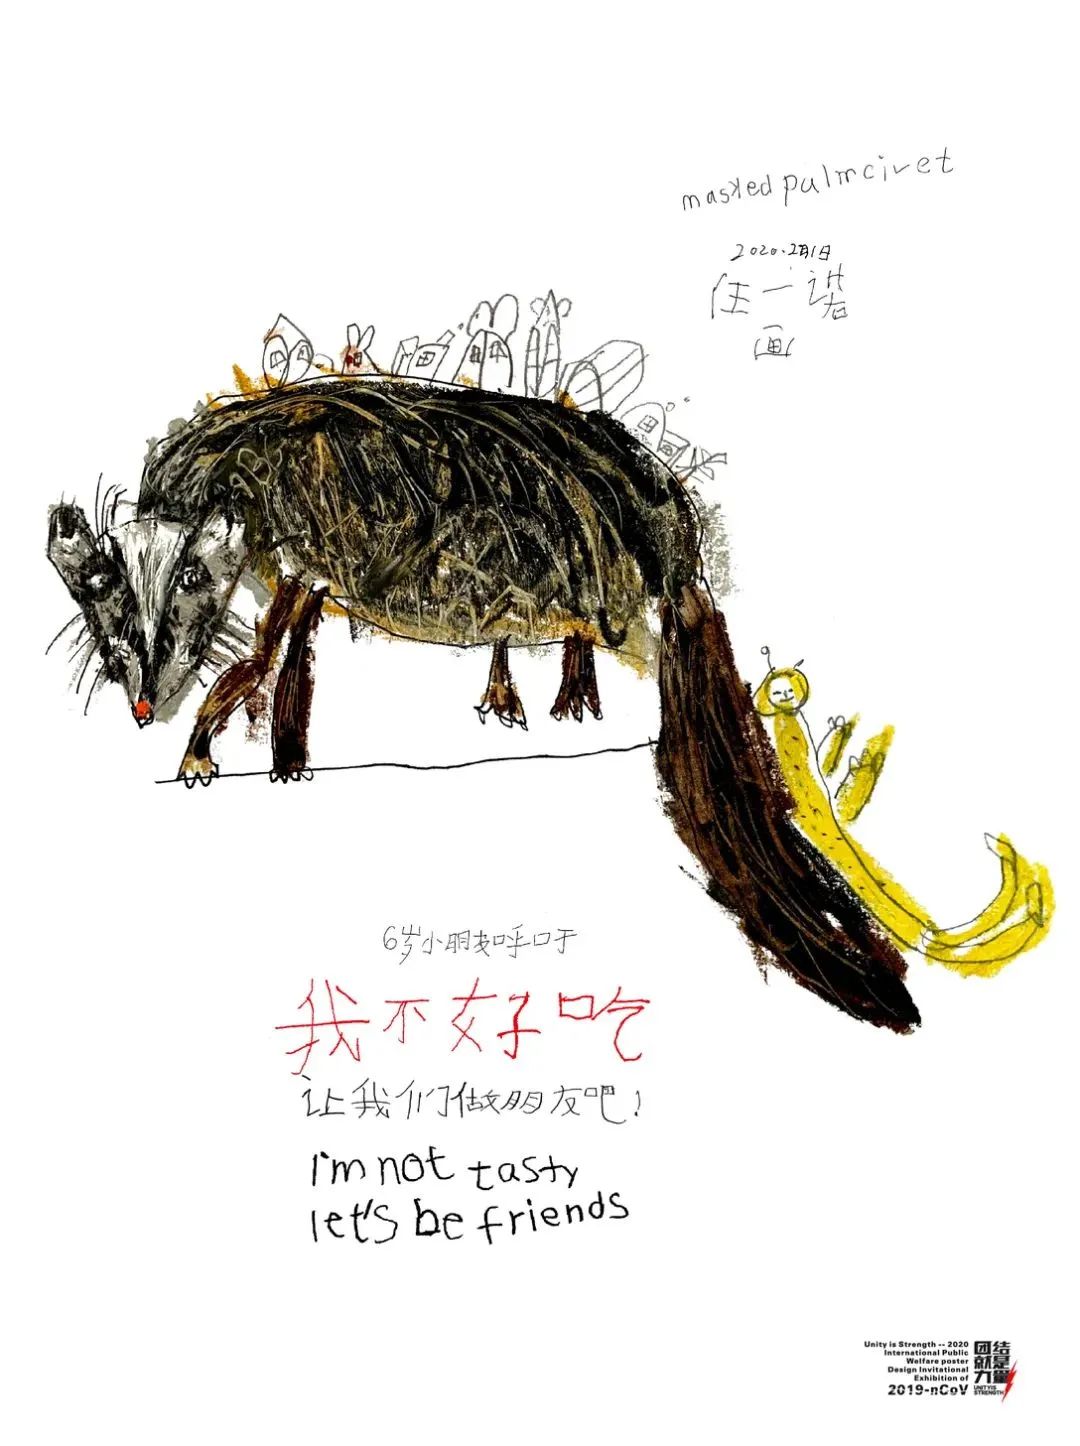 masked palmcivet
2020.2月1日
任一诺
画
6岁小朋友呼口于
我不好吃
让我们做朋友吧！
I'm not tasty
let's be friends
Unity is Strength -- 2020
International Public
Welfare poster
Design Invitational
Exhibition of
2019-nCoV
团结
就是
力量
UNITY IS
STRENGTH